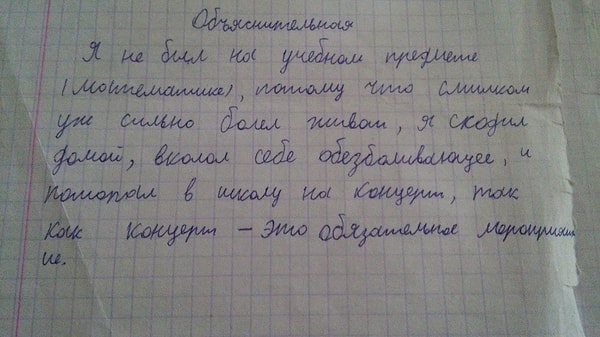 Объяснительная
Я не был на учебном предмете
(математике), потому что слишком
уже сильно болел живот, я сходил
домой, вколол себе обезболивающее, и
потопал в школу на концерт, так
как концерт – это обязательное мероприят
ие.